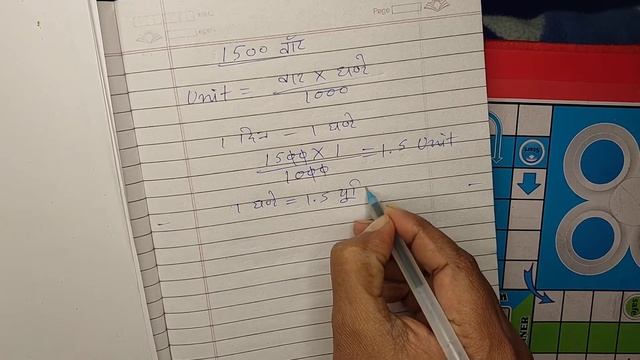 Page
1500 वॉट
Unit = वाट X घण्टे
1000
1 दिन - 1 घण्टे
1500 X 1
1000
= 1.5 Unit
1 घण्टे = 1.5 यूनि
Start